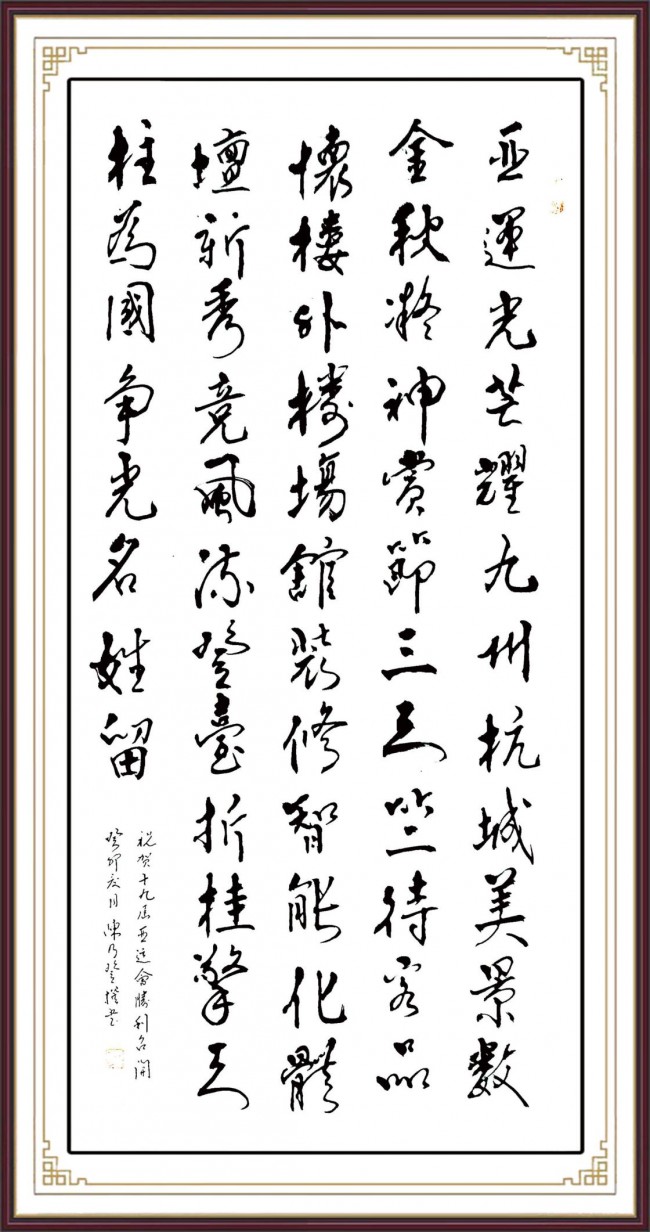 亞運光芒耀九州杭城美景數
金秋凝神賞節三天竺待客品
懷樓外樓場館裝修智能化體
壇新秀竞風流登臺折桂擎天
柱為國争光名姓留
祝贺十九届亞运會勝利召開
癸卯夏月陳乃登撰书